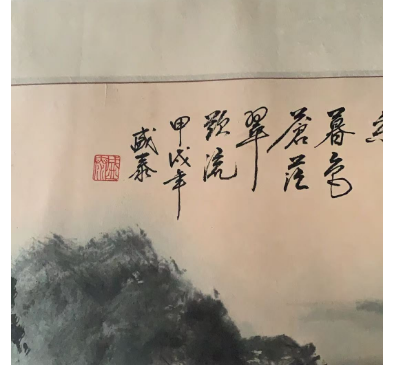 暮色
蒼茫
翠
欲流
甲戌年
盛泰